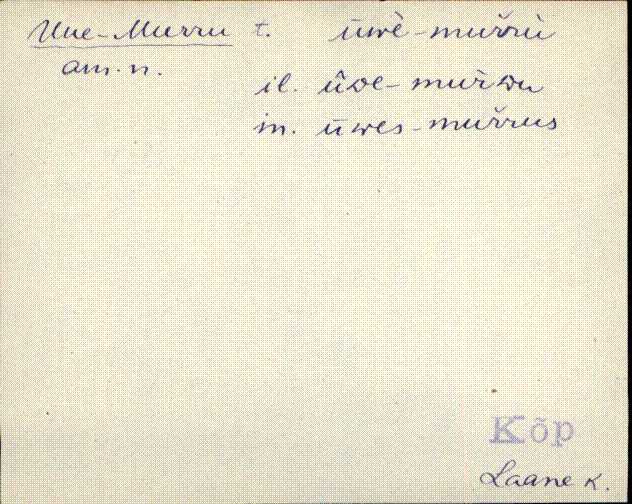 Uue-Murru t. ūwè-muřrù
am. n.
il. ûve-muřwu
in. ūwes-muřrus
Kõp
Laane k.